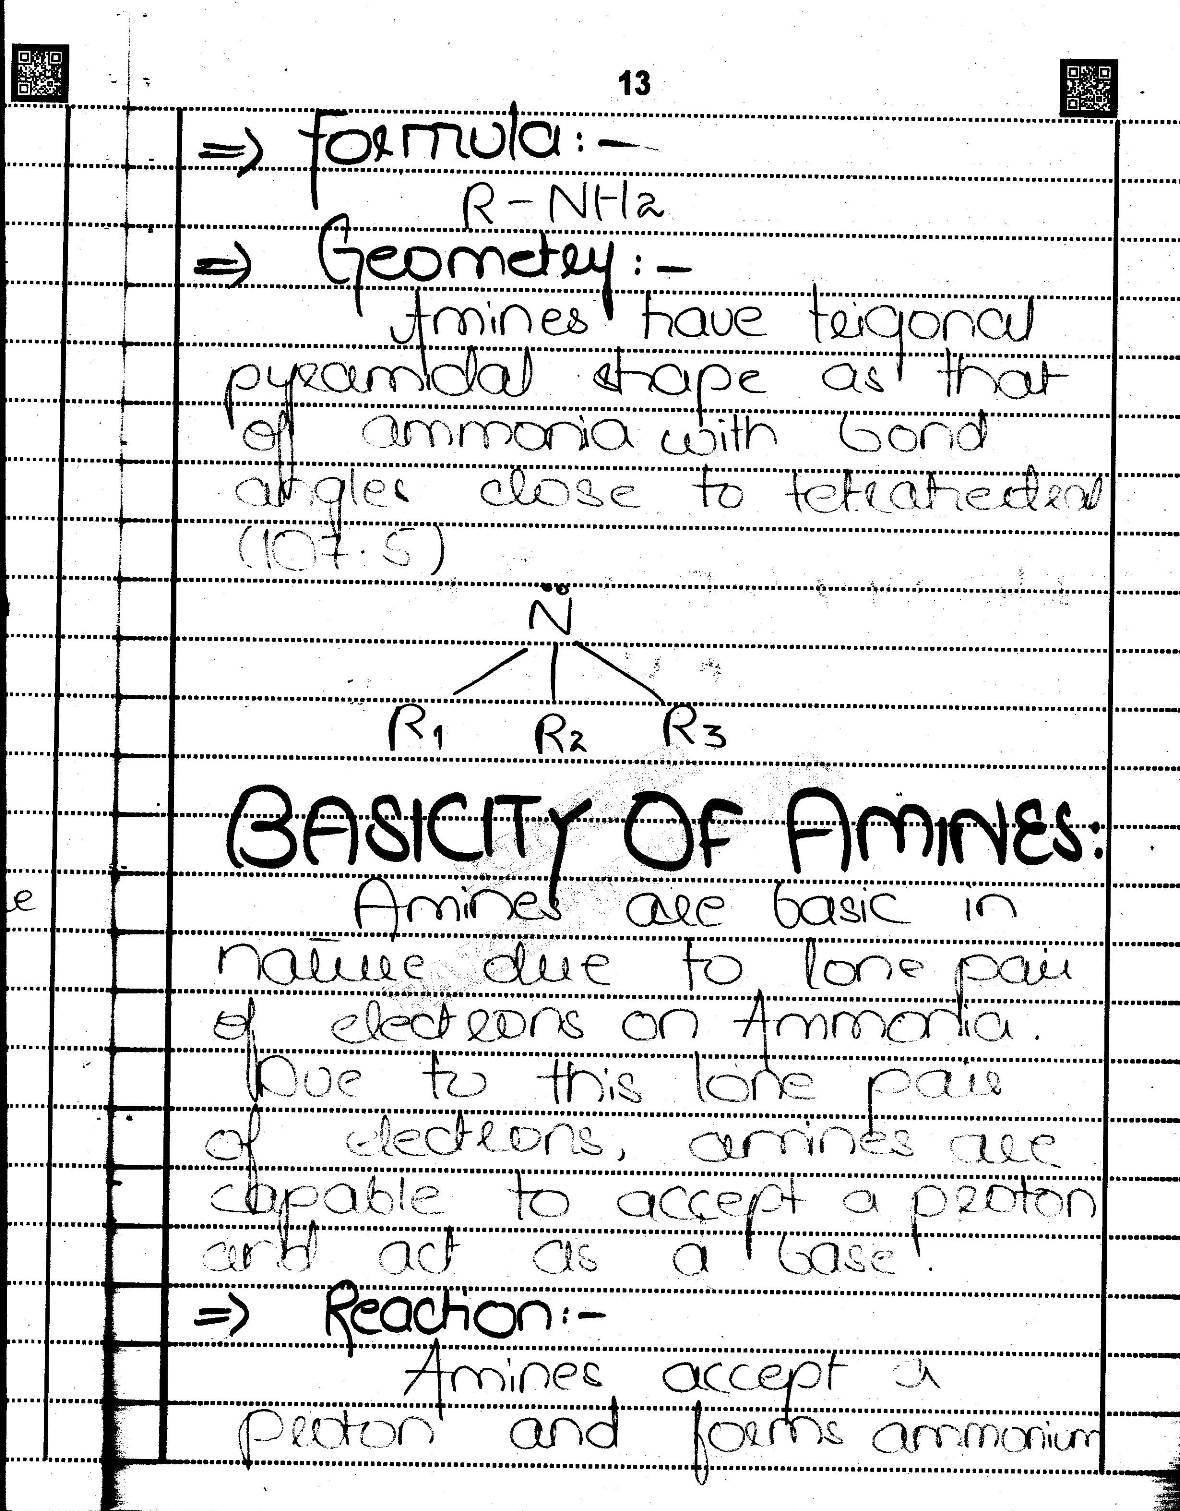 13
=> Formula:-
R-NH2
=> Geometry:-
Amines have trigonal
pyramidal shape as that
of ammonia with bond
angles close to tetrahedral
(107.5)
N
R1 R2 R3
BASICITY OF AMINES:
Amines are basic in
nature due to lone pair
e
of electrons on Ammonia.
Due to this lone pair
of electrons, amines are
capable to accept a proton
and act as a base.
=> Reaction:-
Amines accept a
proton and forms ammonium